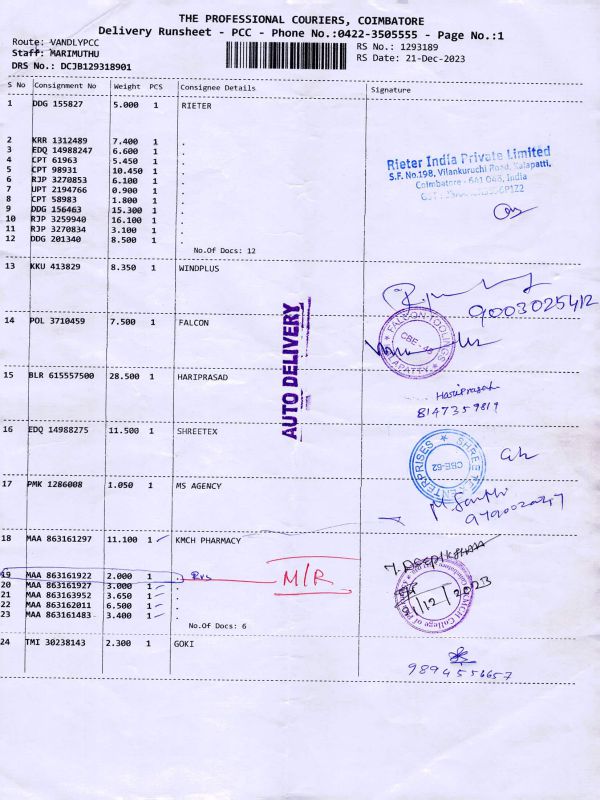 THE PROFESSIONAL COURIERS, COIMBATORE
Delivery Runsheet - PCC - Phone No.:0422-3505555 - Page No.:1
Route: VANDLYPCC
RS No.: 1293189
Staff: MARIMUTHU
RS Date: 21-Dec-2023
DRS No.: DCJB129318901
S No Consignment No Weight PCS Consignee Details Signature
1 DDG 155827 5.000 1 RIETER
2 KRR 1312489 7.400 1 .
3 EDQ 14988247 6.600 1 .
4 CPT 61963 5.450 1 .
5 CPT 98931 10.450 1 .
6 RJP 3270853 6.100 1 .
7 UPT 2194766 0.900 1 .
8 CPT 58983 1.800 1 .
9 DDG 156463 15.300 1 .
10 RJP 3259940 16.100 1 .
11 RJP 3270834 3.100 1 .
12 DDG 201340 8.500 1 .
No.Of Docs: 12
Rieter India Private Limited
S.F. No.198, Vilankuruchi Road, Kalapatti,
Coimbatore - 641 048, India
13 KKU 413829 8.350 1 WINDPLUS
9003025412
14 POL 3710459 7.500 1 FALCON
FALCON TOOLINGS
CBE-48
AUTO DELIVERY
15 BLR 615557500 28.500 1 HARIPRASAD
Hariprasad
8147359819
16 EDQ 14988275 11.500 1 SHREETEX
SHREE ENTERPRISES
CBE-62
17 PMK 1286008 1.050 1 MS AGENCY
18 MAA 863161297 11.100 1 KMCH PHARMACY
19 MAA 863161922 2.000 1 .
M/R
20 MAA 863161927 3.000 1 .
21 MAA 863163952 3.650 1 .
22 MAA 863162011 6.500 1 .
23 MAA 863161483 3.400 1 .
No.Of Docs: 6
KMCH College of
/12/2023
24 TMI 30238143 2.300 1 GOKI
9894556657